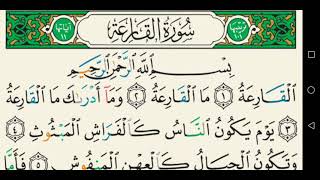 ترتيبها ١٠١
سُورَةُ القَارِعَةِ
آياتها ١١
بِسْمِ ٱللَّهِ ٱلرَّحْمَٰنِ ٱلرَّحِيمِ
ٱلْقَارِعَةُ ١ مَا ٱلْقَارِعَةُ ٢ وَمَآ أَدْرَىٰكَ مَا ٱلْقَارِعَةُ
٣ يَوْمَ يَكُونُ ٱلنَّاسُ كَٱلْفَرَاشِ ٱلْمَبْثُوثِ ٤
وَتَكُونُ ٱلْجِبَالُ كَٱلْعِهْنِ ٱلْمَنفُوشِ ٥ فَأَمَّا